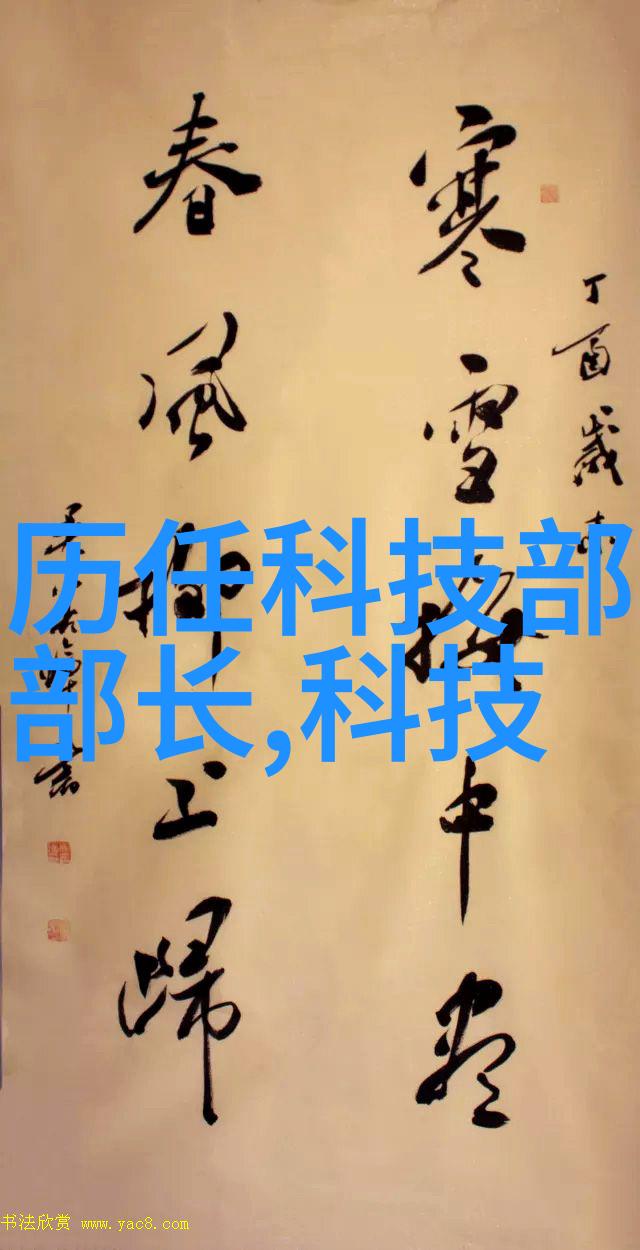 丁酉岁
寒雪梅中尽
春风柳上归
历任科技部
部长,科技
书法欣赏 www.yac8.com